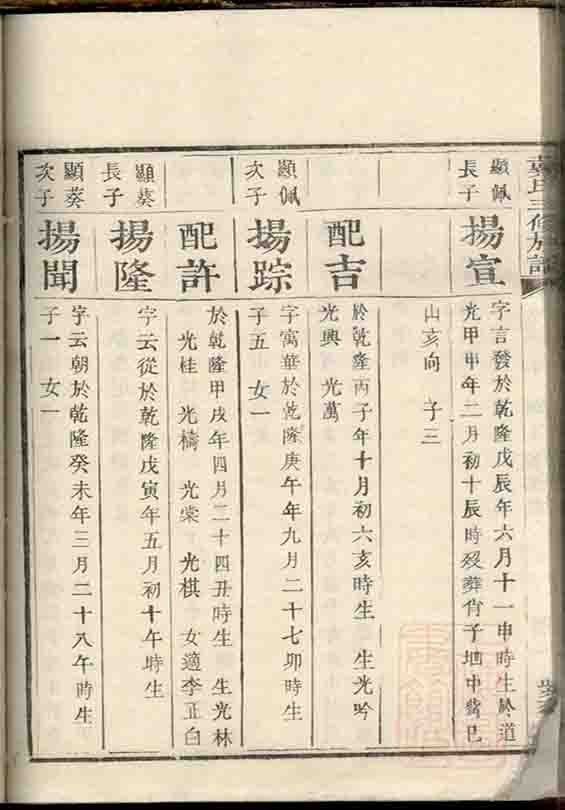 氏三修族譜
顯佩
長子
揚宣
字言發於乾隆戊辰年六月十一申時生於道
光甲申年二月初十辰時歿葬背子地中嘴巳
山亥向 子三
配吉
於乾隆丙子年十月初六亥時生 生光吟
光興 光萬
顯佩
次子
揚踪
字寓華於乾隆庚午年九月二十七卯時生
子五 女一
配許
於乾隆甲戌年四月二十四丑時生 生光林
光桂 光檮 光棠 光棋 女適李正白
顯葵
長子
揚隆
字云從於乾隆戊寅年五月初十午時生
顯葵
次子
揚聞
字云朝於乾隆癸未年三月二十八午時生
子一 女一